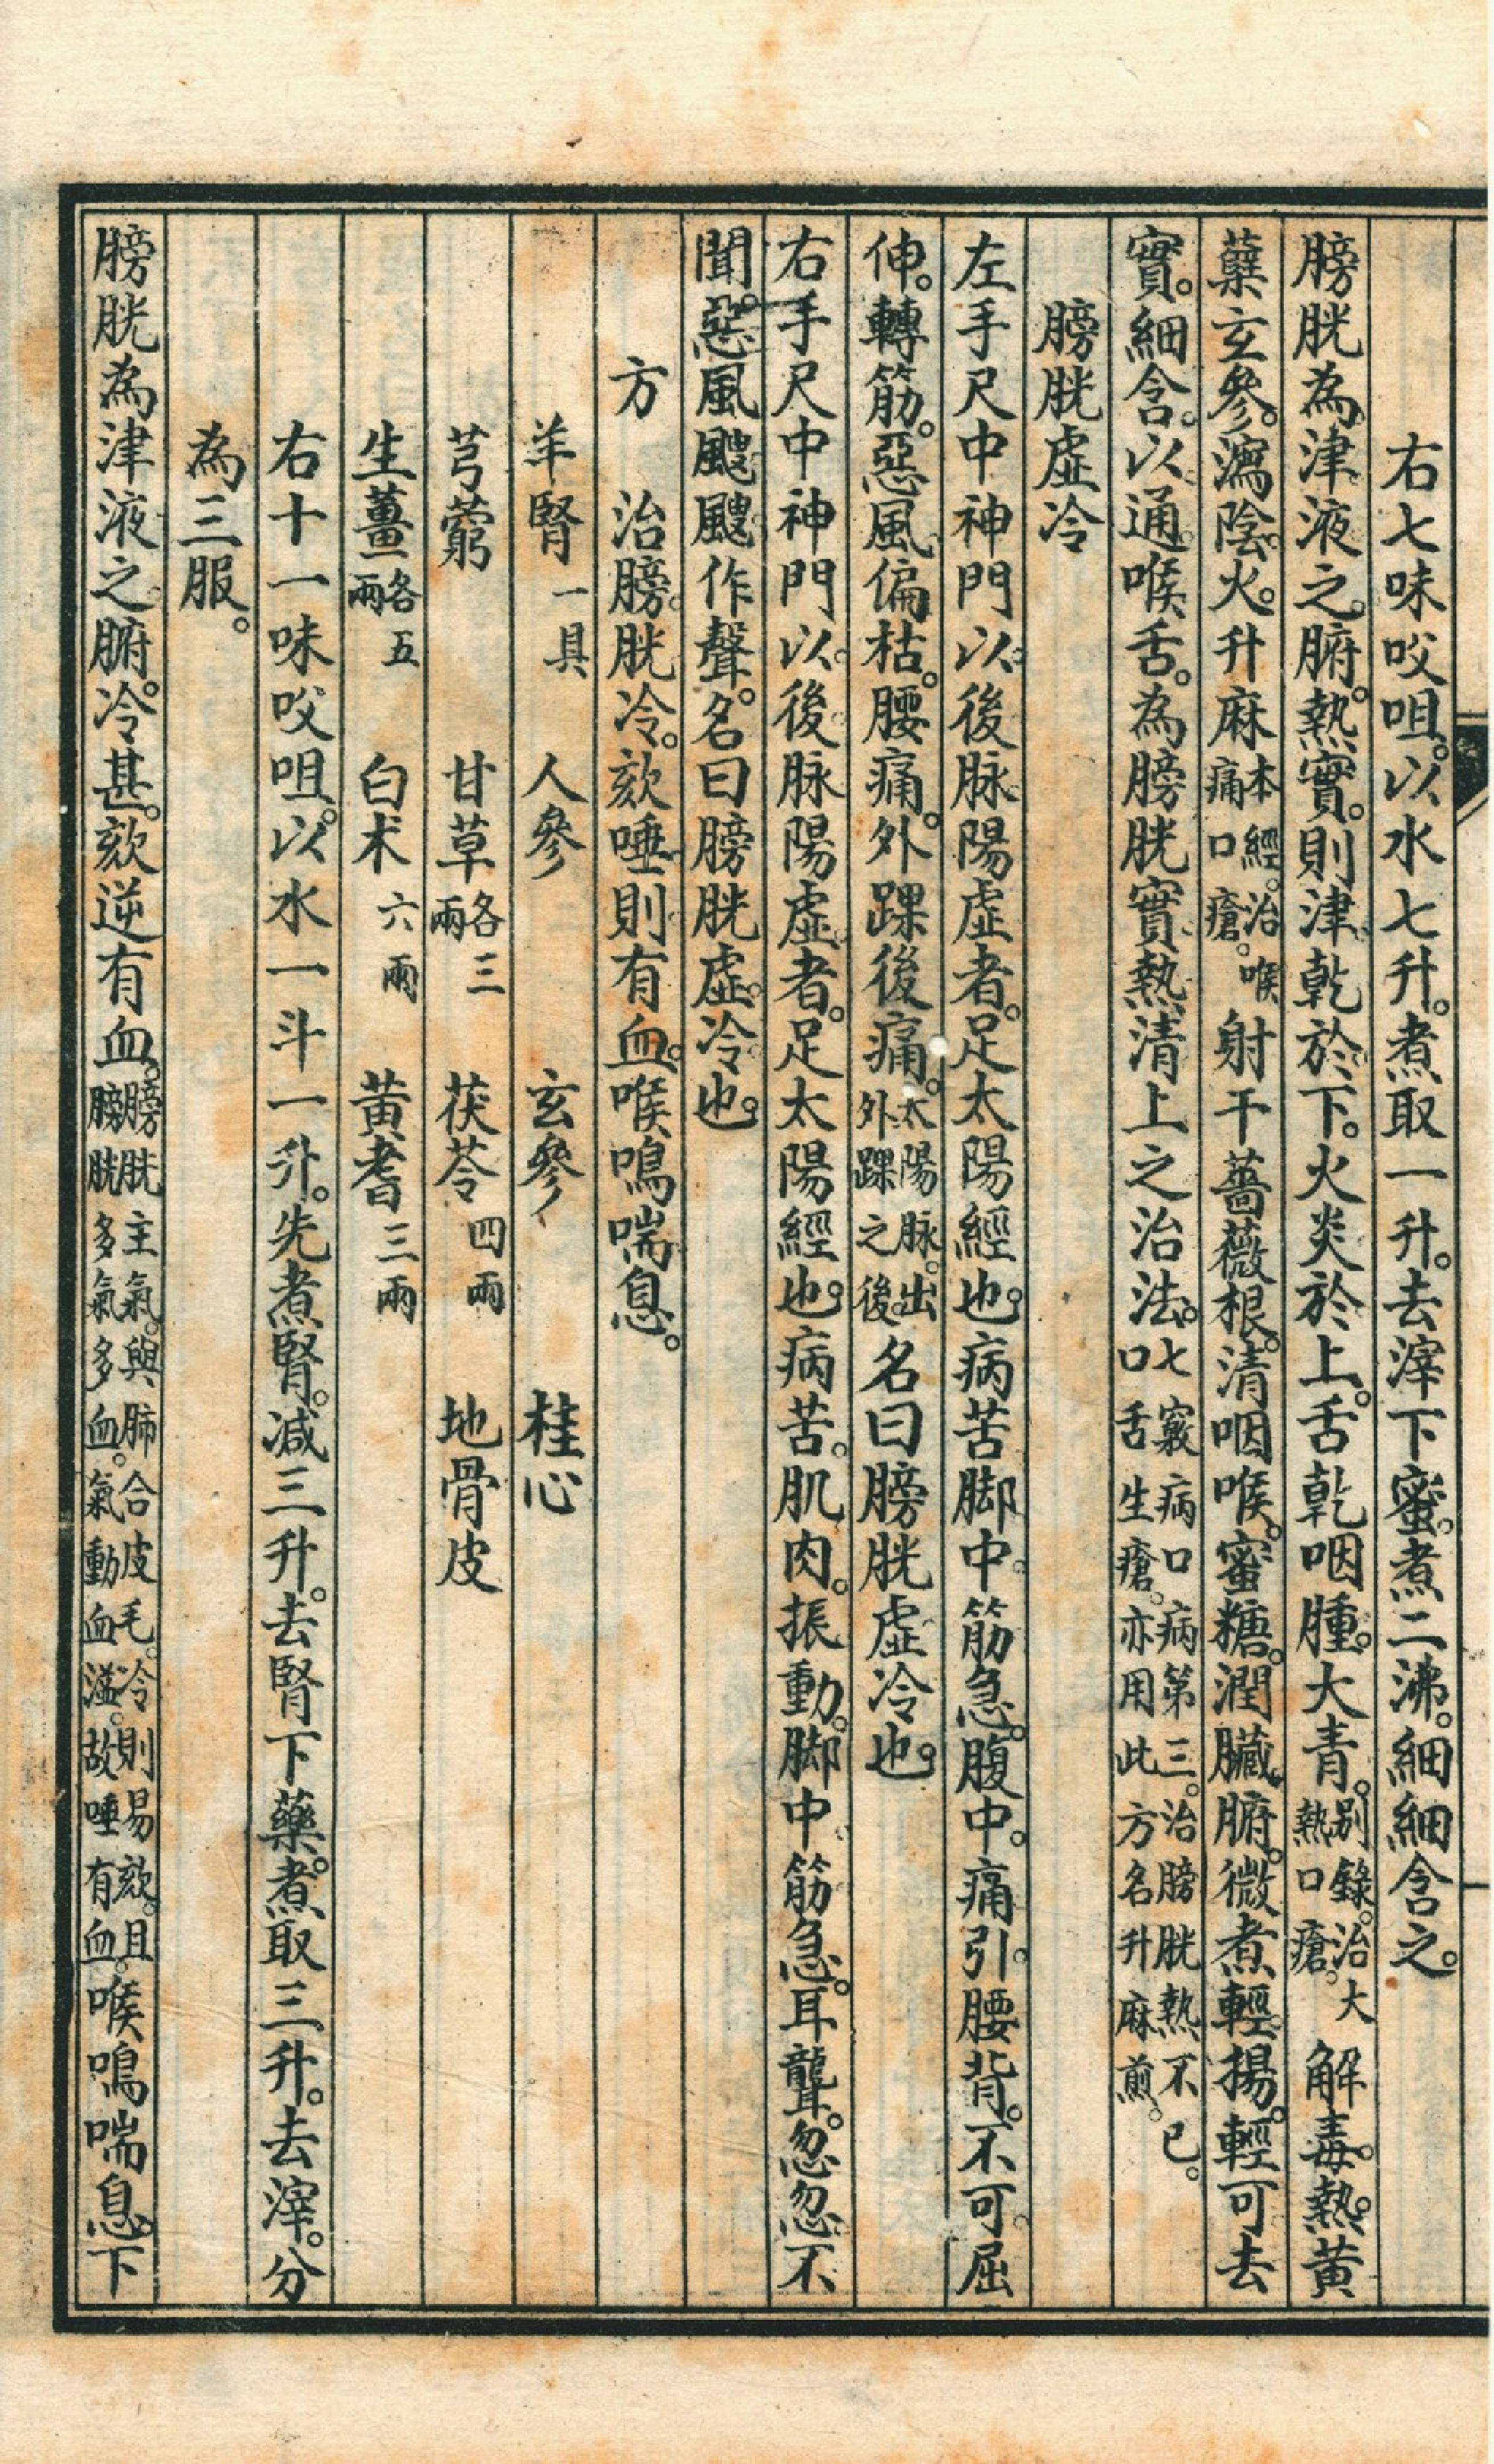 右七味㕮咀。以水七升。煮取一升。去滓下蜜。煮二沸。細細含之。
膀胱為津液之腑。熱實。則津乾於下。火炎於上。舌乾咽腫。大青。別錄。治大熱口瘡。解毒。熱。黄
蘗玄參。瀉陰火。升麻本經。治喉痛口瘡。射干薔薇根。清咽喉。蜜糖。潤臟腑。微煮輕揚。輕可去
實。細含。以通喉舌。為膀胱實熱清上之治法。七竅病口病第三。治膀胱熱不已。口舌生瘡。亦用此方名升麻煎。
膀胱虛冷
左手尺中神門以後脉陽虛者。足太陽經也。病苦脚中筋急。腹中痛引腰背。不可屈
伸。轉筋。惡風偏枯。腰痛。外踝後痛。太陽脉。出外踝之後。名曰膀胱虛冷也。
右手尺中神門以後脉陽虛者。足太陽經也。病苦。肌肉振動。脚中筋急。耳聾。忽忽不
聞。惡風颼颼作聲。名曰膀胱虛冷也。
方　治膀胱冷。欬唾則有血。喉鳴喘息。
羊腎一具　人參　玄參　桂心
芎藭　甘草各三兩　茯苓四兩　地骨皮
生薑各五兩　白朮六兩　黄耆三兩
右十一味㕮咀。以水一斗一升。先煮腎。減三升。去腎下藥。煮取三升。去滓。分
為三服。
膀胱為津液之腑。冷甚。欬逆有血。膀胱主氣。與肺合皮毛。冷則易欬。且膀胱多氣多血。氣動血溢。故唾有血。喉鳴喘息。下